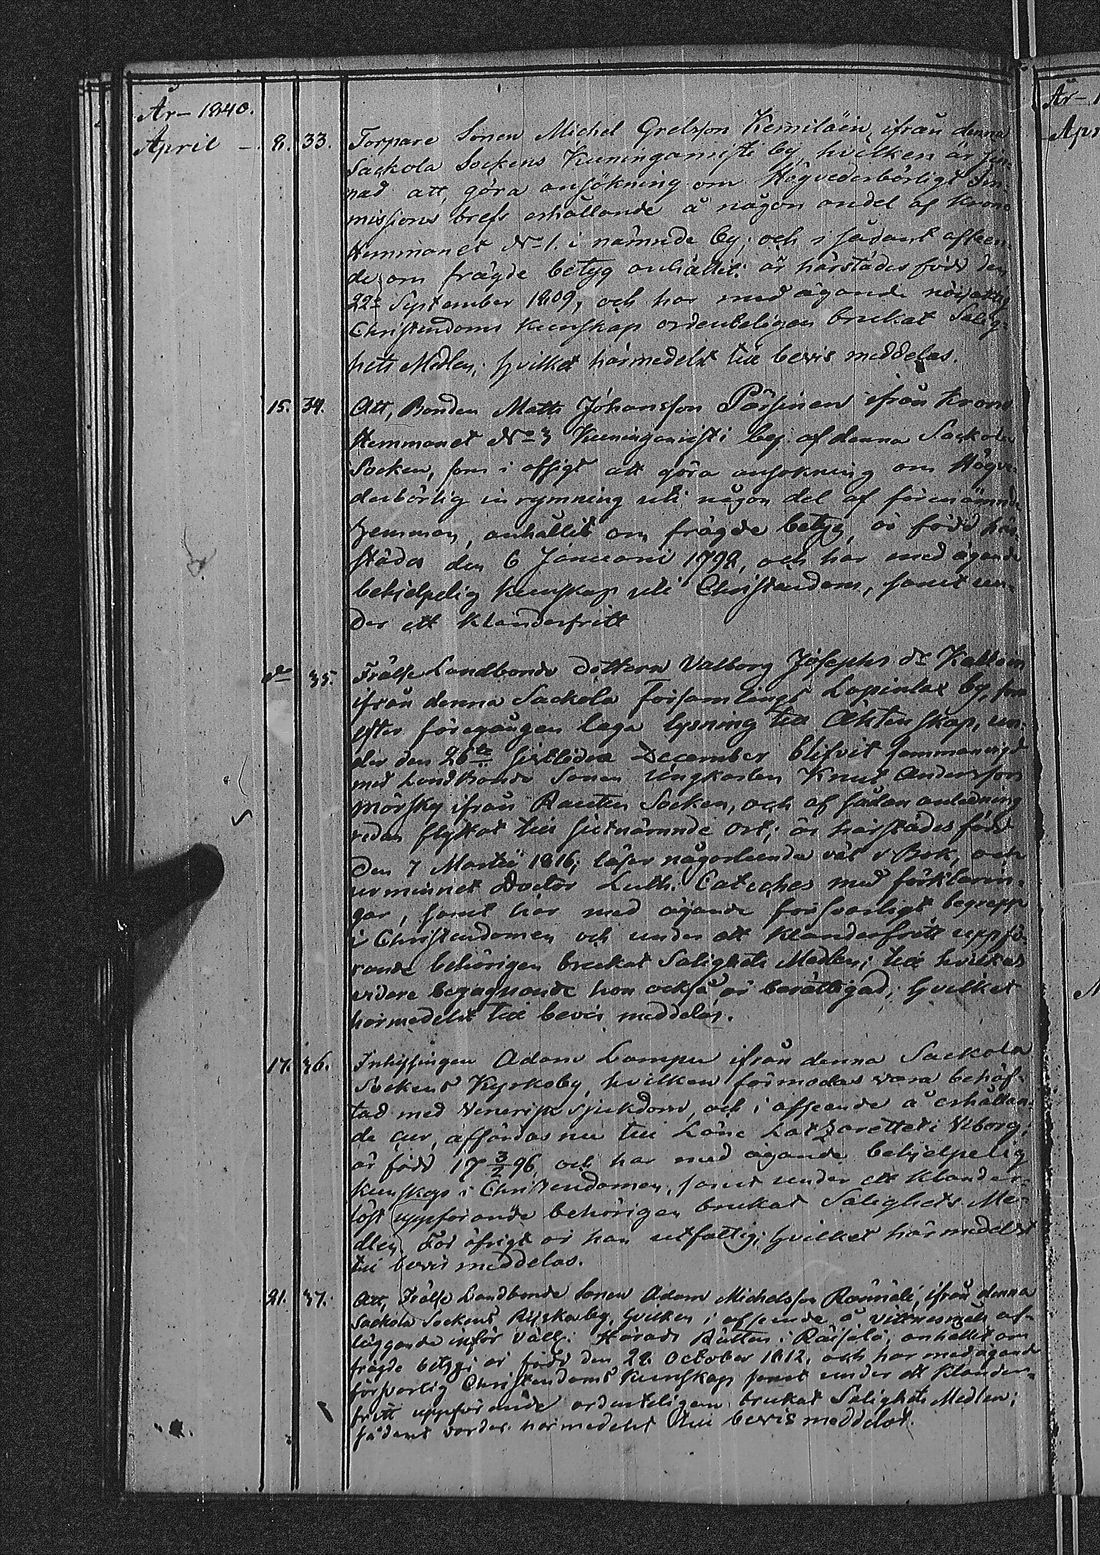 År 1840.
April – 8. 33. Torpare Sonen Michel Grelsson Kemiläin, ifrån denna
Sackola Sockens Kuninganristi by, hvilken är sin-
nad att, göra ansökning om Högvederbörligt Im-
missions brefs erhållande å någon andel af Krono
Hemmanet No 1. i nämnde by; och i sådant afseen-
de om frägde betyg anhållit: är härstädes född den
22e September 1809, och har med ägande nöjaktig
Christendoms kunskap ordenteligen brukat Salig-
hets Medlen; hvilket härmedelst till bevis meddelas.
15. 34. Att, Bonden Matts Johansson Pärsinen ifrån Krono
Hemmanet No 3 Kuninganristi by af denna Sackola
Socken, som i afsigt att göra ansökning om Högve-
derbörlig inrymning uti någon del af förenämnde
Hemman, anhållit om frägde betyg, är född här-
städes den 6 Januari 1792, och har med ägande
behjelpelig kunskap uti Christendom, samt un-
der ett klanderfritt
do 35. Frälse Landbonde dottern Valborg Josephs dr
ifrån denna Sackola Församlings Lapinlax by, som
efter föregången laga lysning till Äktenskap, un-
der den 26te sistledne December blifvit sammanvigd
med Landbonde Sonen Ungkarlen Knut Andersson
Mörsky ifrån Rautus Socken, och af sådan anledning
redan flyttat till sistnämnde ort; är härstädes född
den 7 Martii 1816; läser någorlunda väl i Bok, och
ur minnet Doctor Luth. Cateches med förklarin-
gar, samt har med ägande försvarligt begrepp
i Christendomen och under ett klanderfritt uppfö-
rande behörigen brukat Salighets Medlen; till hvilkas
vidare begagnande hon också är berättigad; hvilket
härmedelst till bevis meddelas.
17. 36. Inhysingen Adam Lampu ifrån denna Sackola
Sockens Kyrkoby, hvilken förmodas vara behäf-
tad med Venerisk sjukdom, och i afseende å erhållan-
de cur, affärdas nu till Läne Lazarettet i Viborg;
är född 17 3/2 96, och har med ägande behjelpelig
kunskap i Christendomen, samt under ett klander-
löst uppförande behörigen brukat Salighets Me-
dlen. För öfrigt är han utfattig; hvilket härmedelst
till bevis meddelas.
21. 37. Att, Frälse Landbonde Sonen Adam Michelsson ifrån denna
Sackola Sockens by, hvilken i afseende å vittnesmåls af-
läggande inför Vällofl. Härads Rätten i Räisälä, anhållit om
frägde betyg; är född den 28 October 1812, och har med ägande
försvarlig Christendoms kunskap samt under ett klander-
fritt uppförande ordenteligen brukat Salighets Medlen;
sådant varder härmedelst till bevis meddelat.
År 1
Apr